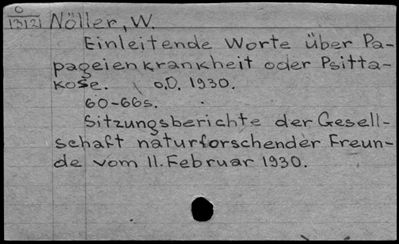 O
13121 Nöller, W.
Einleitende Worte über Pa-
pageienkrankheit oder Psitta-
kose. o.O. 1930.
60-66s.
Sitzungsberichte der Gesell-
schaft naturforschender Freun-
de vom 11. Februar 1930.